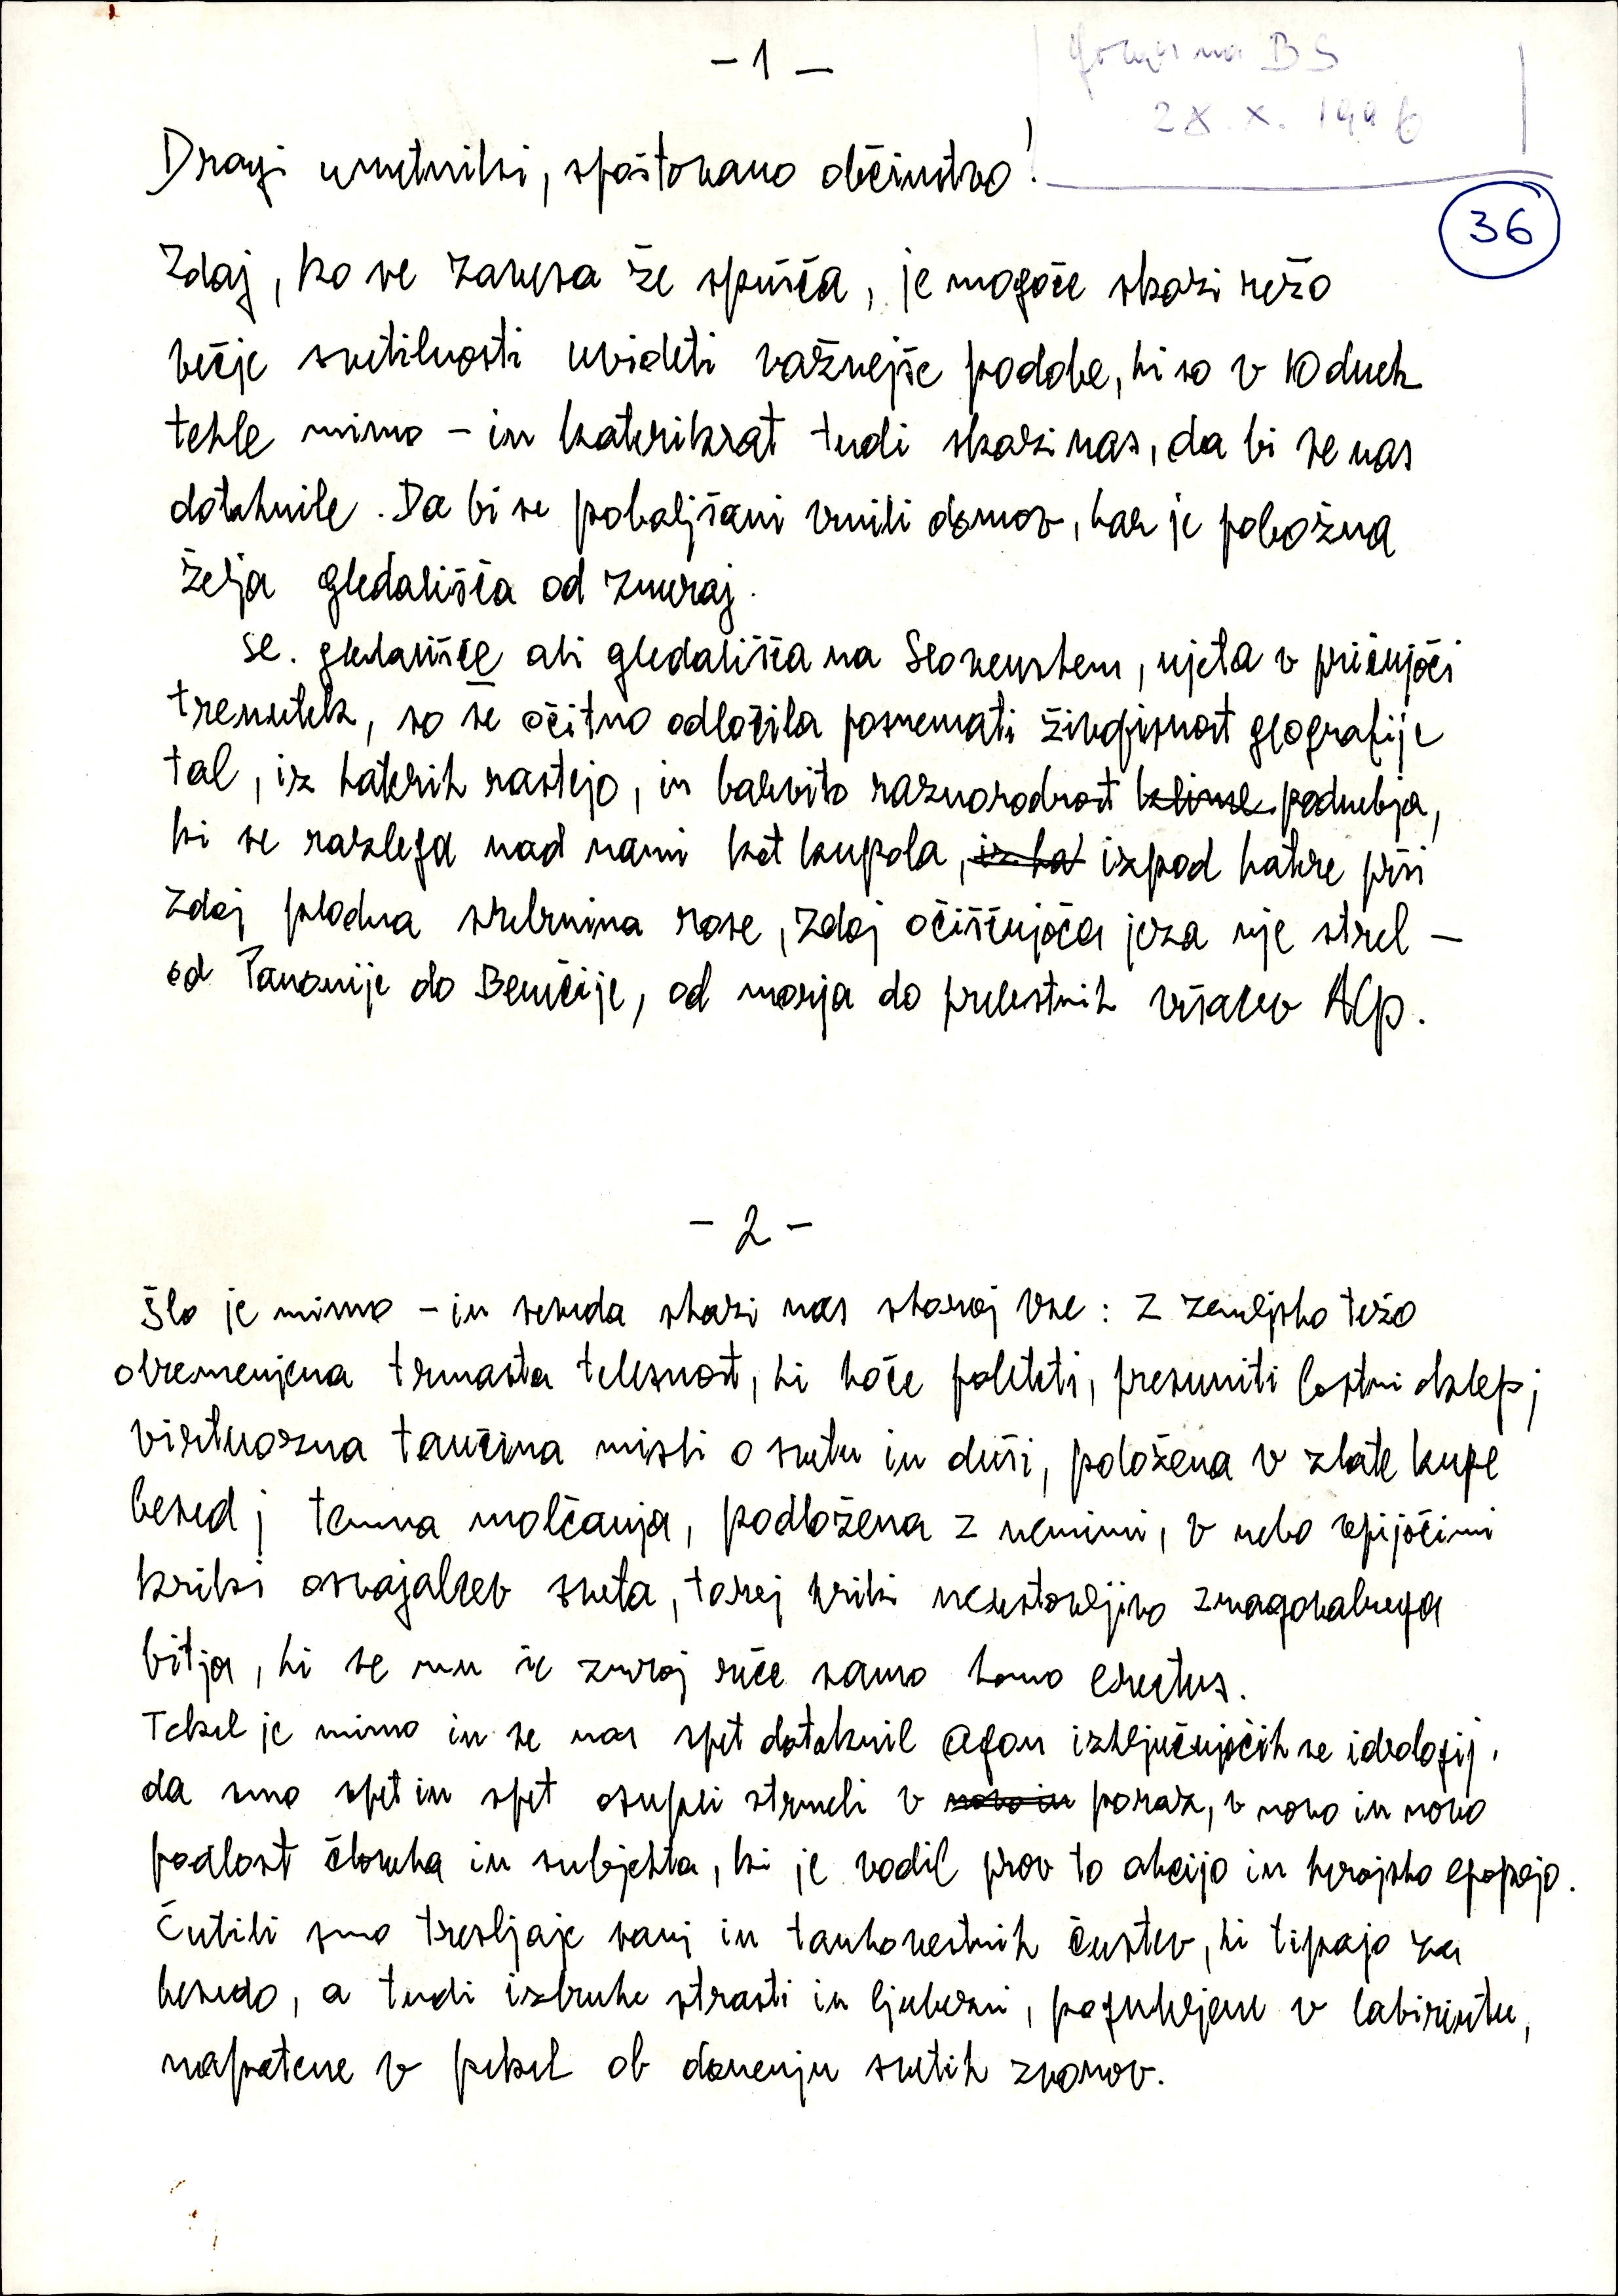 - 1 -
govor na BS
28. X. 1996
Dragi umetniki, spoštovano občinstvo!
36
Zdaj, ko se zavesa že spušča, je mogoče skozi režo
večje svetilnosti uvideti važnejše podobe, ki so v 10 dneh
tekle mimo – in katerikrat tudi skozi nas, da bi se nas
dotaknile. Da bi se poboljšani vrnili domov, kar je pobožna
želja gledališča od zmeraj.
Sl. gledališče ali gledališča na Slovenskem, ujeta v pričujoči
trenutek, so se očitno odločila posnemati živopisnost geografije
tal, iz katerih rastejo, in barvito raznorodnost klime podnebja,
ki se razlega nad nami kot kupola, iz ka izpod katere prši
zdaj plodna srebrnina rose, zdaj očiščujoča jeza nje strel –
od Panonije do Benečije, od morja do prelestnih višavev Alp.
- 2 -
Šlo je mimo – in seveda skozi nas skoraj vse: z zemeljsko težo
obremenjena trmasta telesnost, ki hoče poleteti, presuniti lastni oklep;
virtuozna tančina misli o svetu in duši, položena v zlate kupe
besed; temna molčanja, podložena z nemimi, v nebo vpijočimi
kriki osvajalcev sveta, torej kriki neustavljivo zmagovalnega
bitja, ki se mu še zmeraj reče samo homo erectus.
Tekel je mimo in se nas spet dotaknil agon izključujočih se ideologij,
da smo spet in spet osupli strmeli v novo in poraz, v novo in novo
podlost človeka in subjekta, ki je vodil prav to akcijo in herojsko epopejo.
Čutili smo tresljaje sanj in tankovestnih čustev, ki tipajo za
besedo, a tudi izbruhe strasti in ljubezni, pogubljene v labirintu,
napotene v pekel ob donenju svetih zvonov.